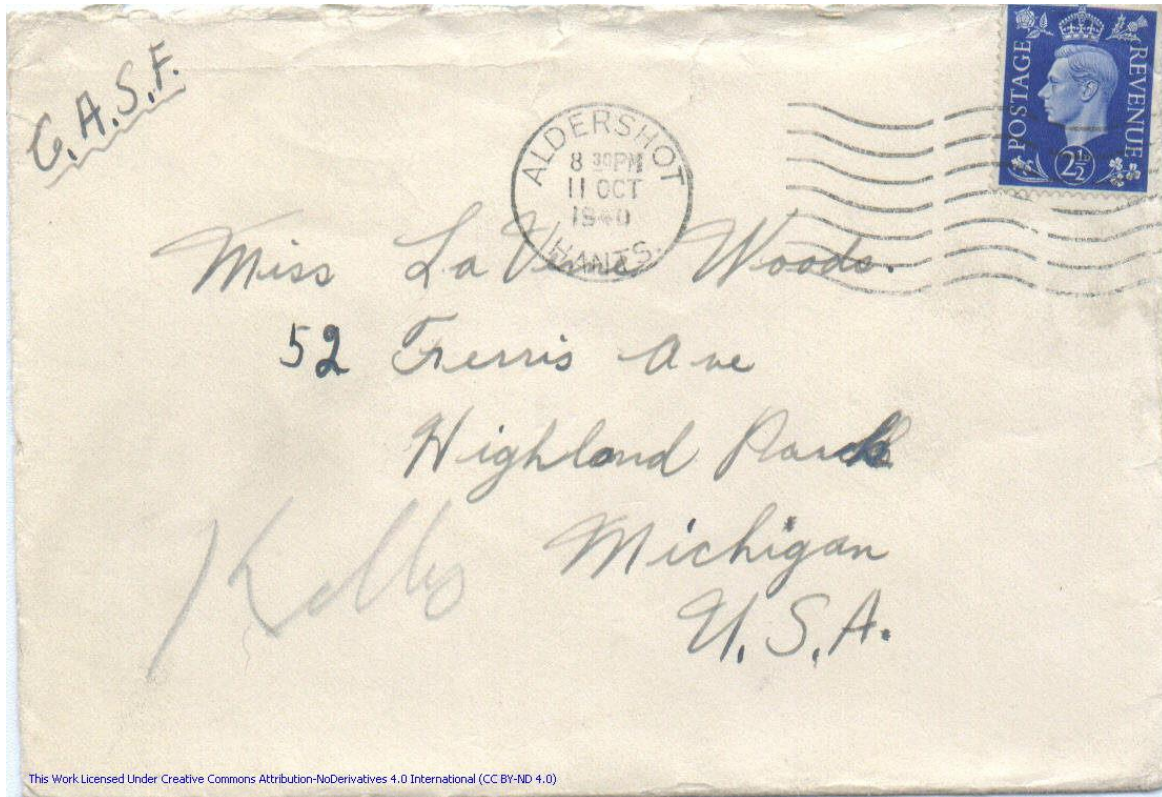 C.A.S.F.
POSTAGE REVENUE
2½
ALDERSHOT
8 30PM
11 OCT
1940
HANTS.
Miss La Verne Woods.
52 Ferris Ave
Highland Park
Michigan
U.S.A.
This Work Licensed Under Creative Commons Attribution-NoDerivatives 4.0 International (CC BY-ND 4.0)